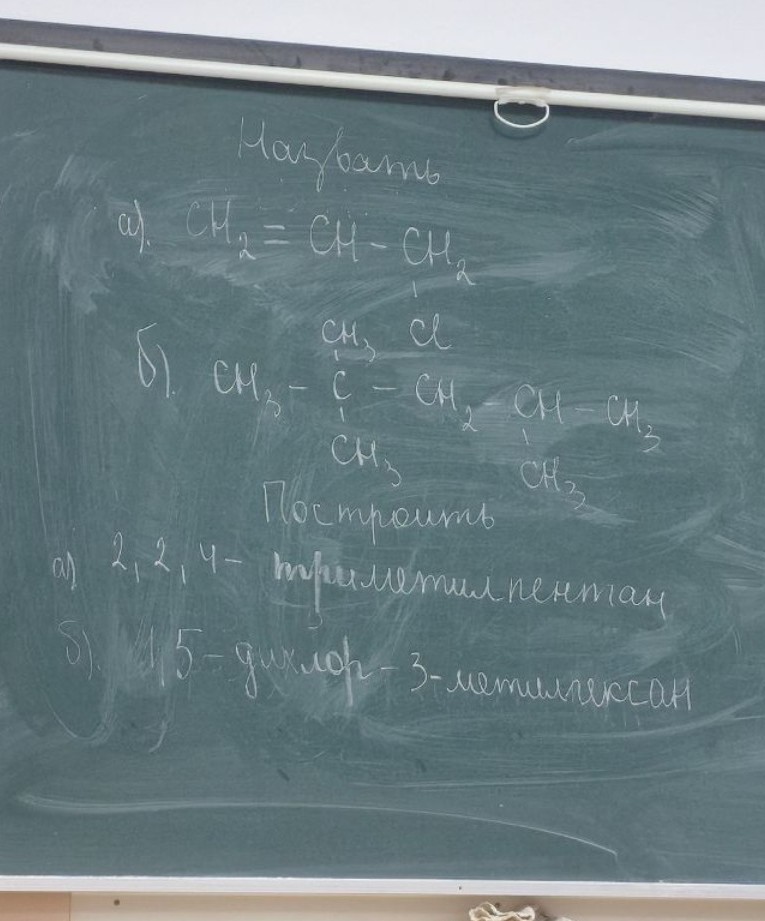 Назвать
а). CH₂ = CH - CH₂
CH₃ Cl
б). CH₃ - C - CH₂ - CH - CH₃
CH₃ CH₃
Построить
а) 2, 2, 4 - триметилпентан
б). 1,5 - дихлор - 3-метилгексан